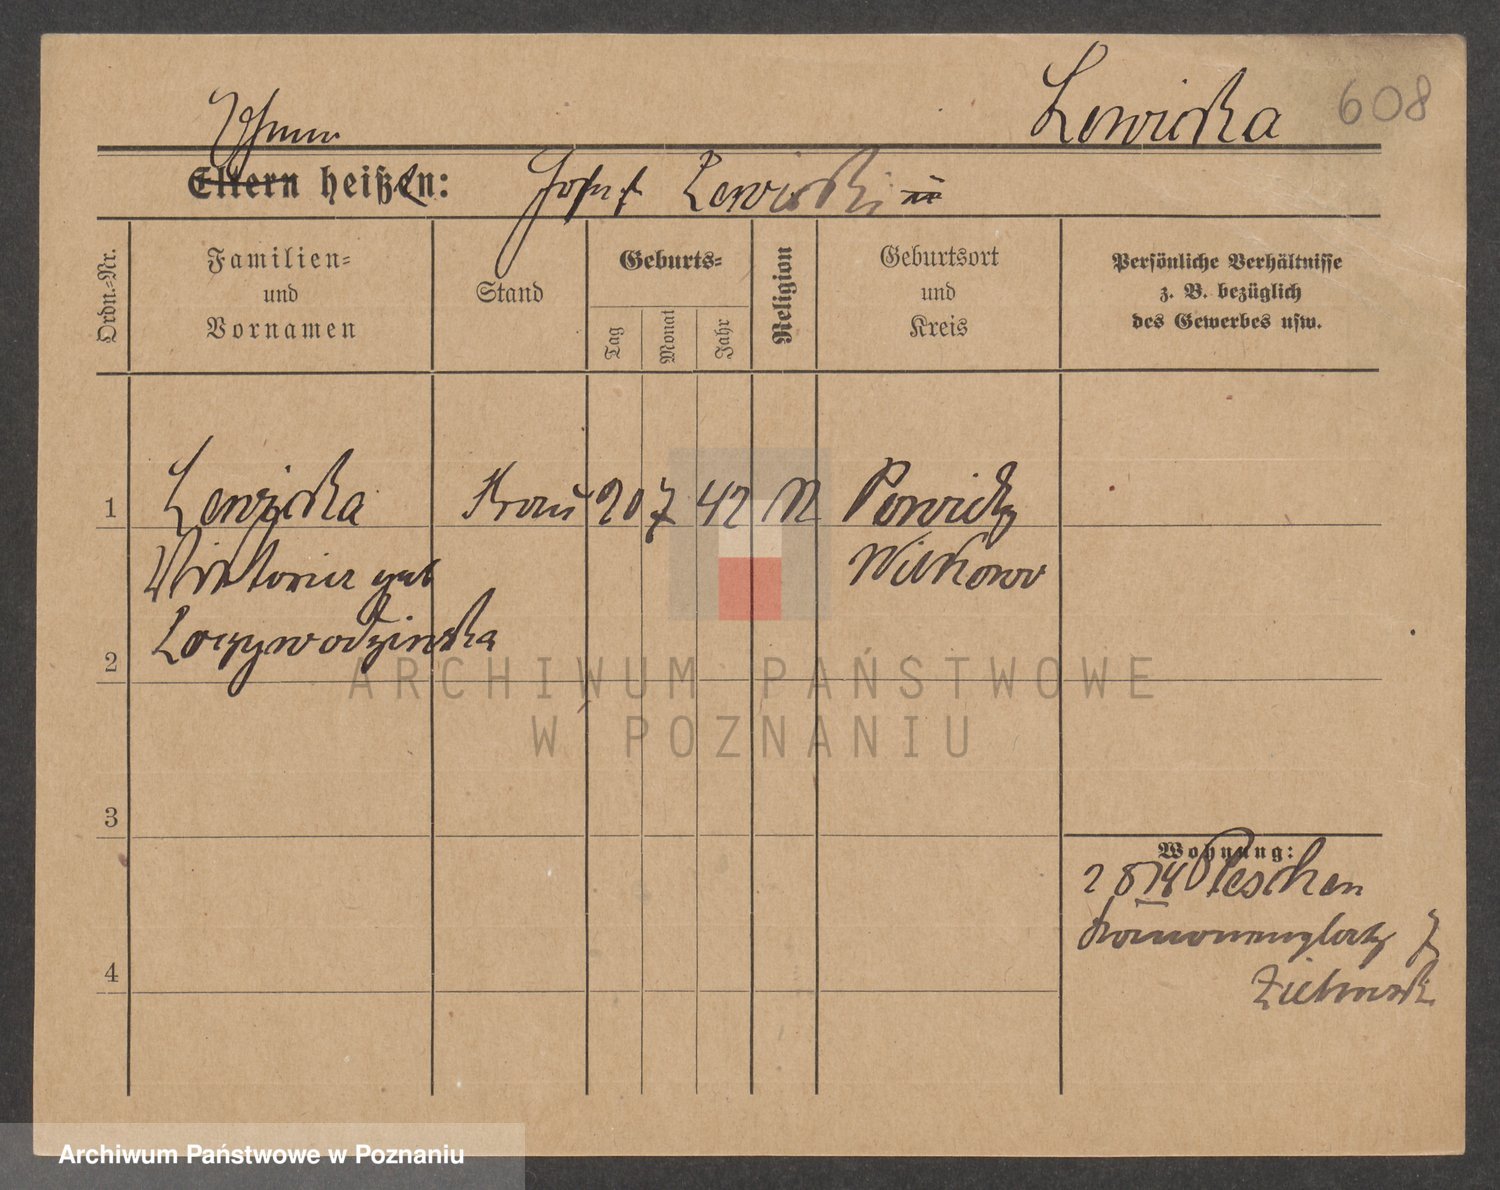 Lewicka 608
Eltern heißen: Josef Lewicki
Ordn.-Nr.
Familien-
und
Vornamen
Stand
Geburts-
Tag
Monat
Jahr
Religion
Geburtsort
und
Kreis
Persönliche Verhältnisse
z. B. bezüglich
des Gewerbes usw.
1 Lewicka Frau 20 7 42 Powidz
Viktoria geb Witkowo
2
3
Wohnung:
2 8 14 Pleschen
7
4
ARCHIWUM PAŃSTWOWE
W POZNANIU
Archiwum Państwowe w Poznaniu